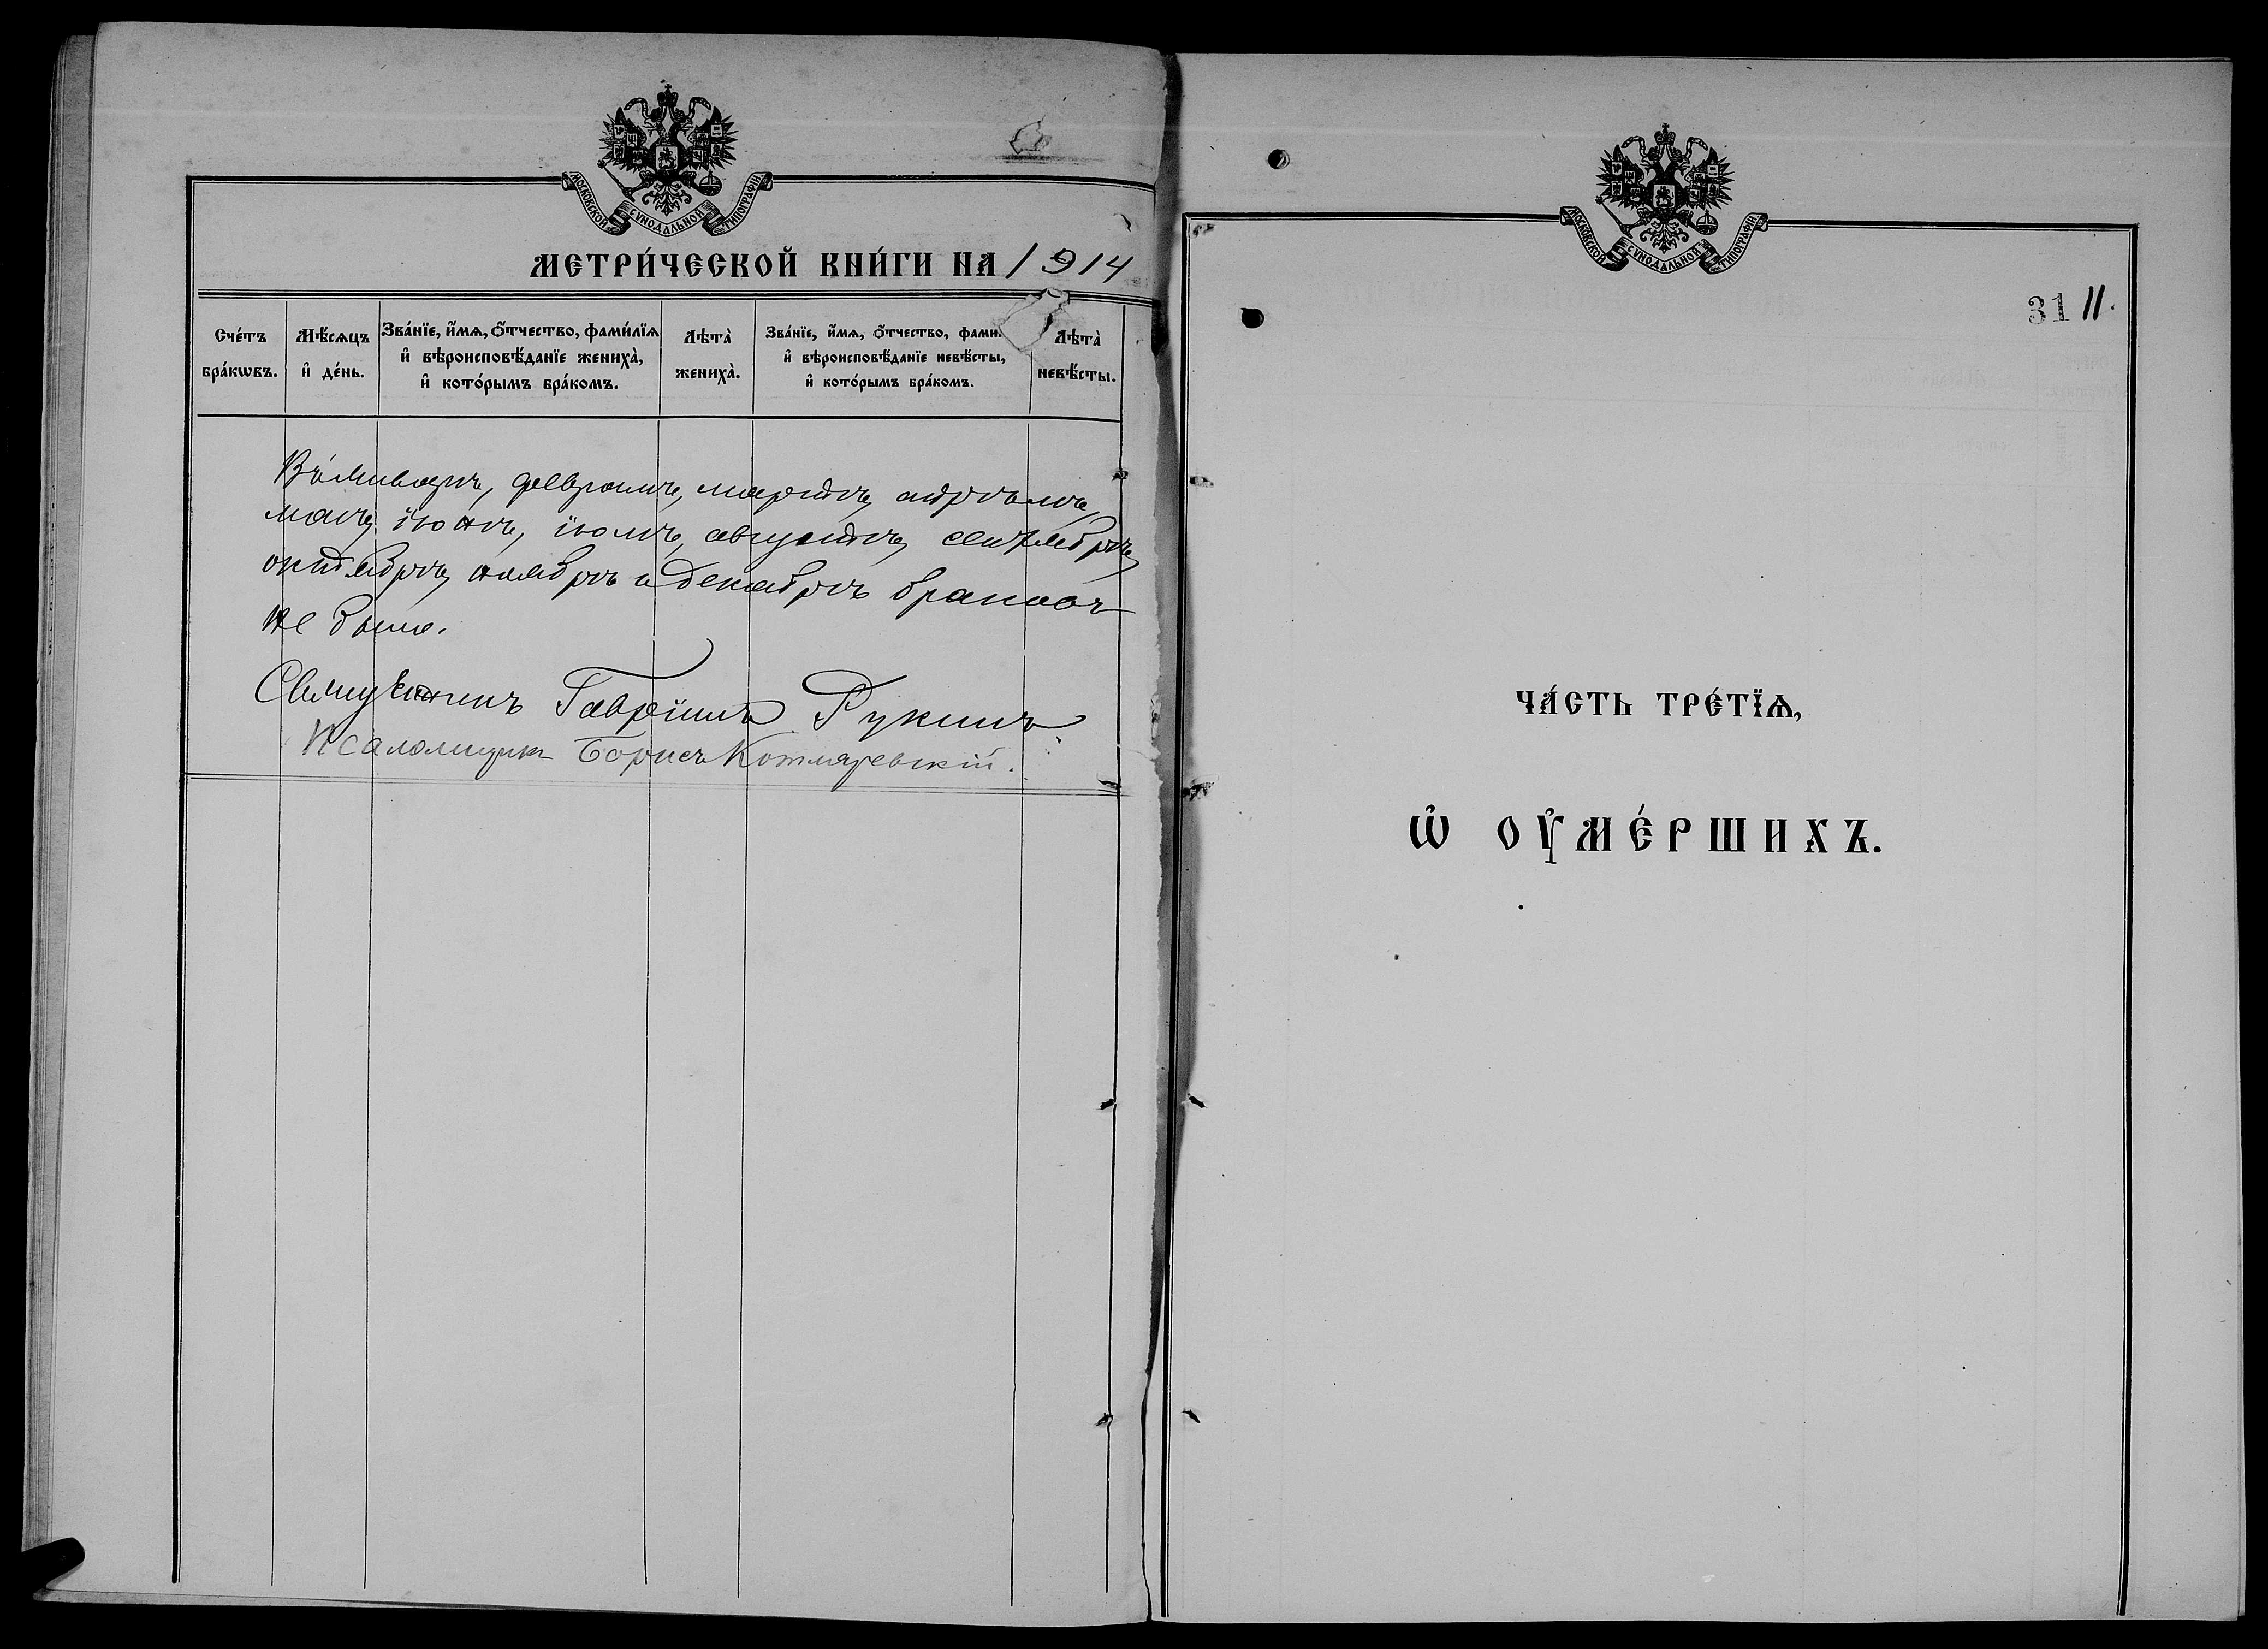 МОСКОВСКОЙ СѴНОДАЛЬНОЙ ТИПОГРАФІИ
МЕТРИ́ЧЕСКОЙ КНИ́ГИ НА 1914
Сче́тъ бра́кѡвъ.
Мѣ́сѧцъ и҆ де́нь.
Зва́нїе, и҆́мѧ, ѻ҆́тчество, фами́лїѧ
и҆ вѣроисповѣ́данїе жениха̀,
и҆ кото́рымъ бра́комъ.
Лѣта̀ жениха̀.
Зва́нїе, и҆́мѧ, ѻ҆́тчество, фами
и҆ вѣроисповѣ́данїе невѣ́сты,
и҆ кото́рымъ бра́комъ.
Лѣта̀ невѣ́сты.
Въ январѣ, февралѣ, мартѣ, апрѣлѣ,
маѣ, іюнѣ, іюлѣ, августѣ, сентябрѣ,
октябрѣ, ноябрѣ и декабрѣ браковъ
не было.
Священникъ Гавріилъ Рукинъ
Псаломщикъ Борисъ Котляревскій.
МОСКОВСКОЙ СѴНОДАЛЬНОЙ ТИПОГРАФІИ
31 11.
ЧА́СТЬ ТРЕ́ТЇѦ,
Ѡ҆ ОУ҆МЕ́РШИХЪ.